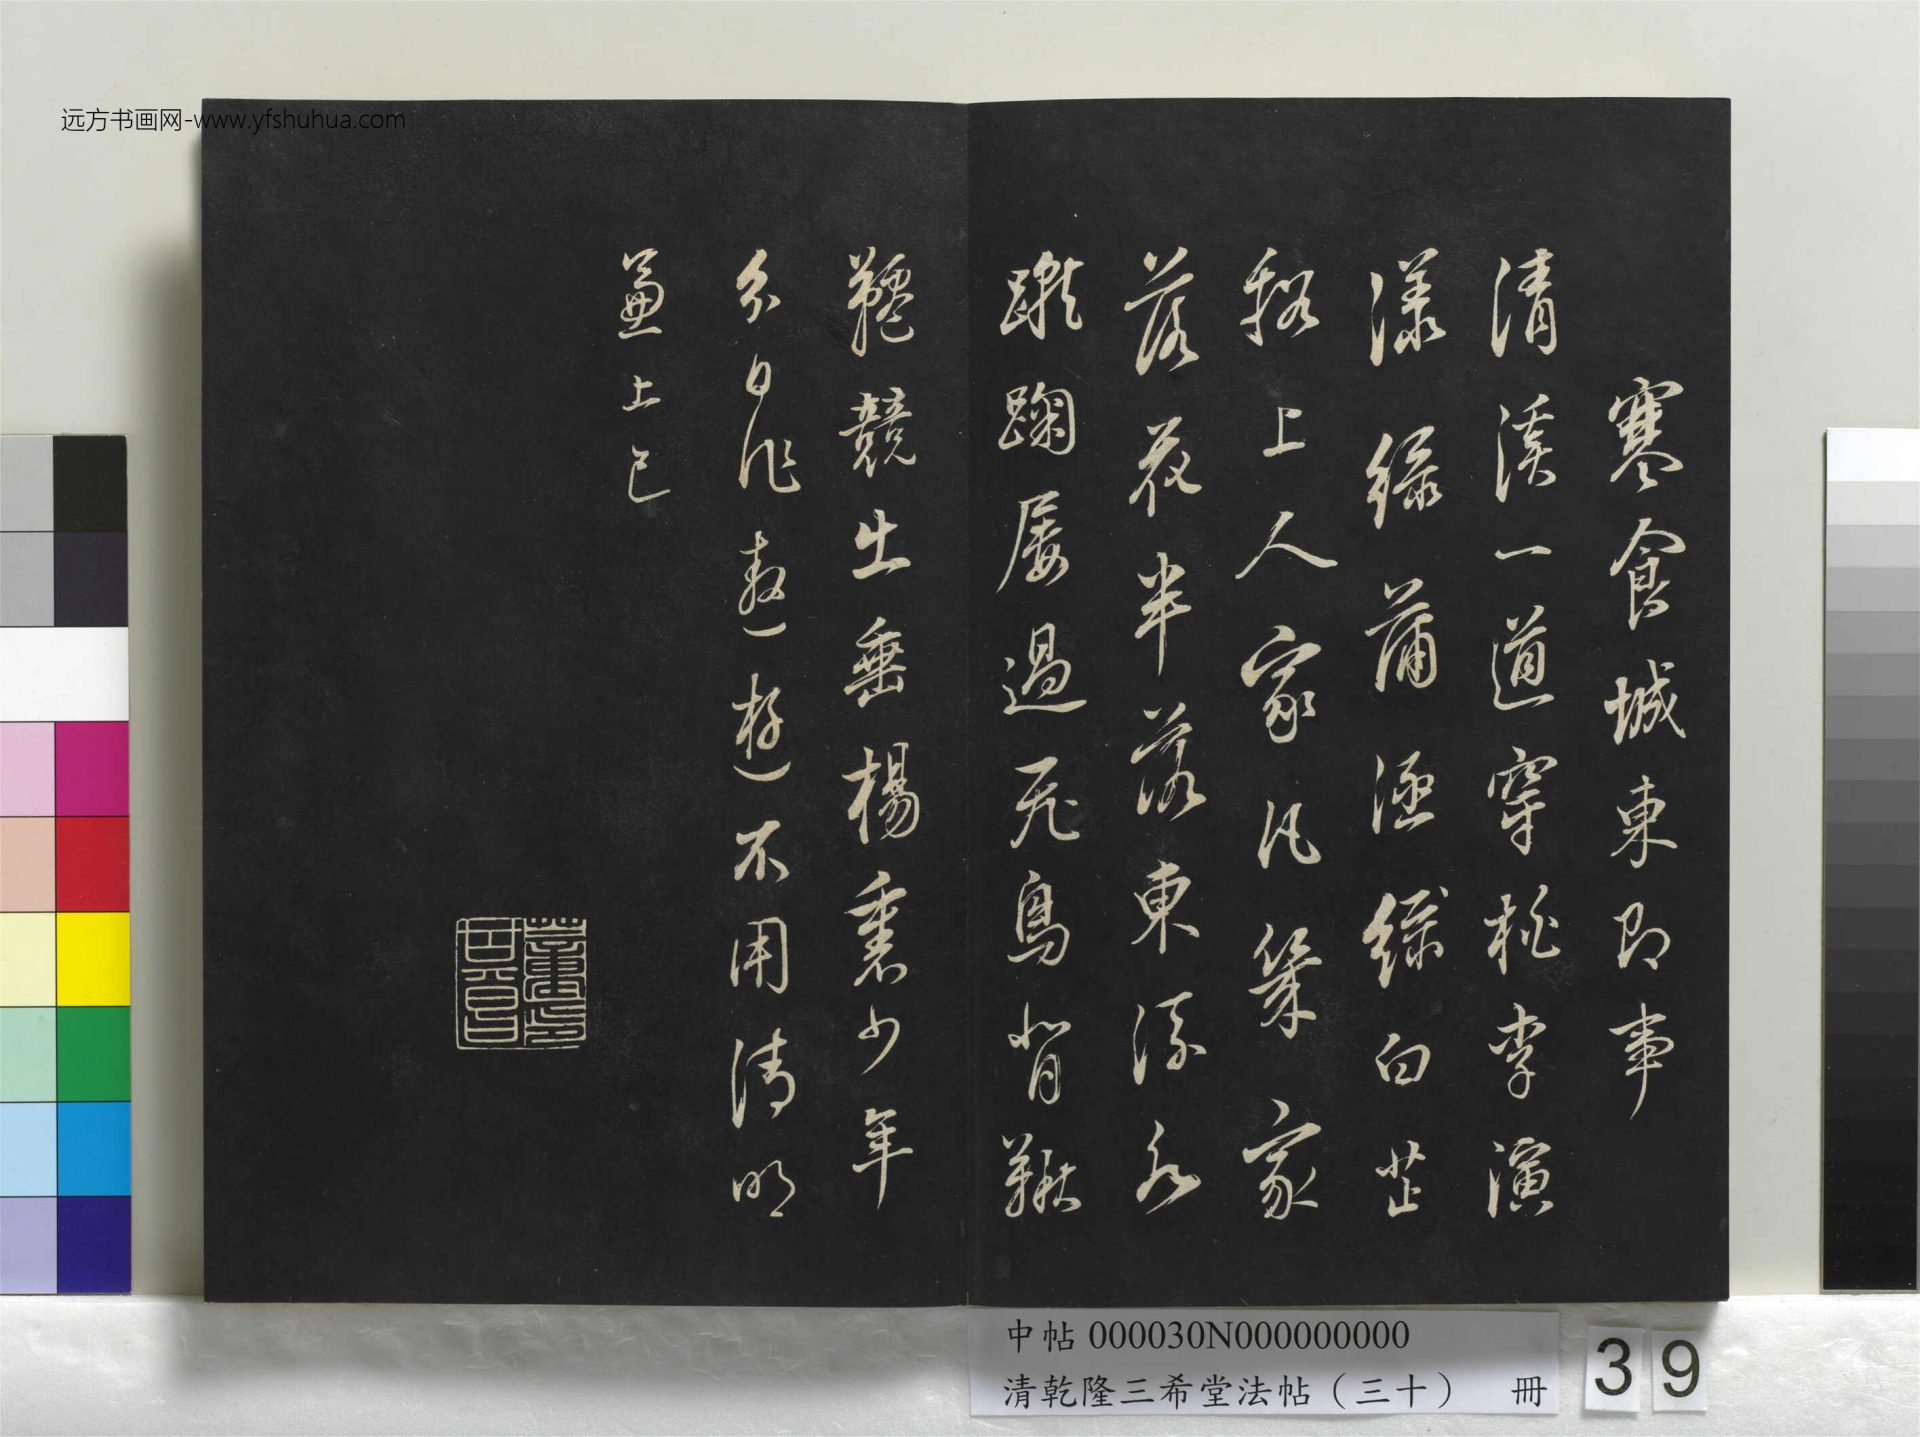 远方书画网-www.yfshuhua.com
寒食城東即事
清溪一道穿桃李演
漾綠蒲涵綠白芷
谿上人家凡幾家
落花半落東流水
蹴踘屢過飛鳥背鞦
韆競出垂楊裏少年
分日作遨遊不用清明
兼上巳
中帖 000030N000000000
清乾隆三希堂法帖（三十） 冊
39